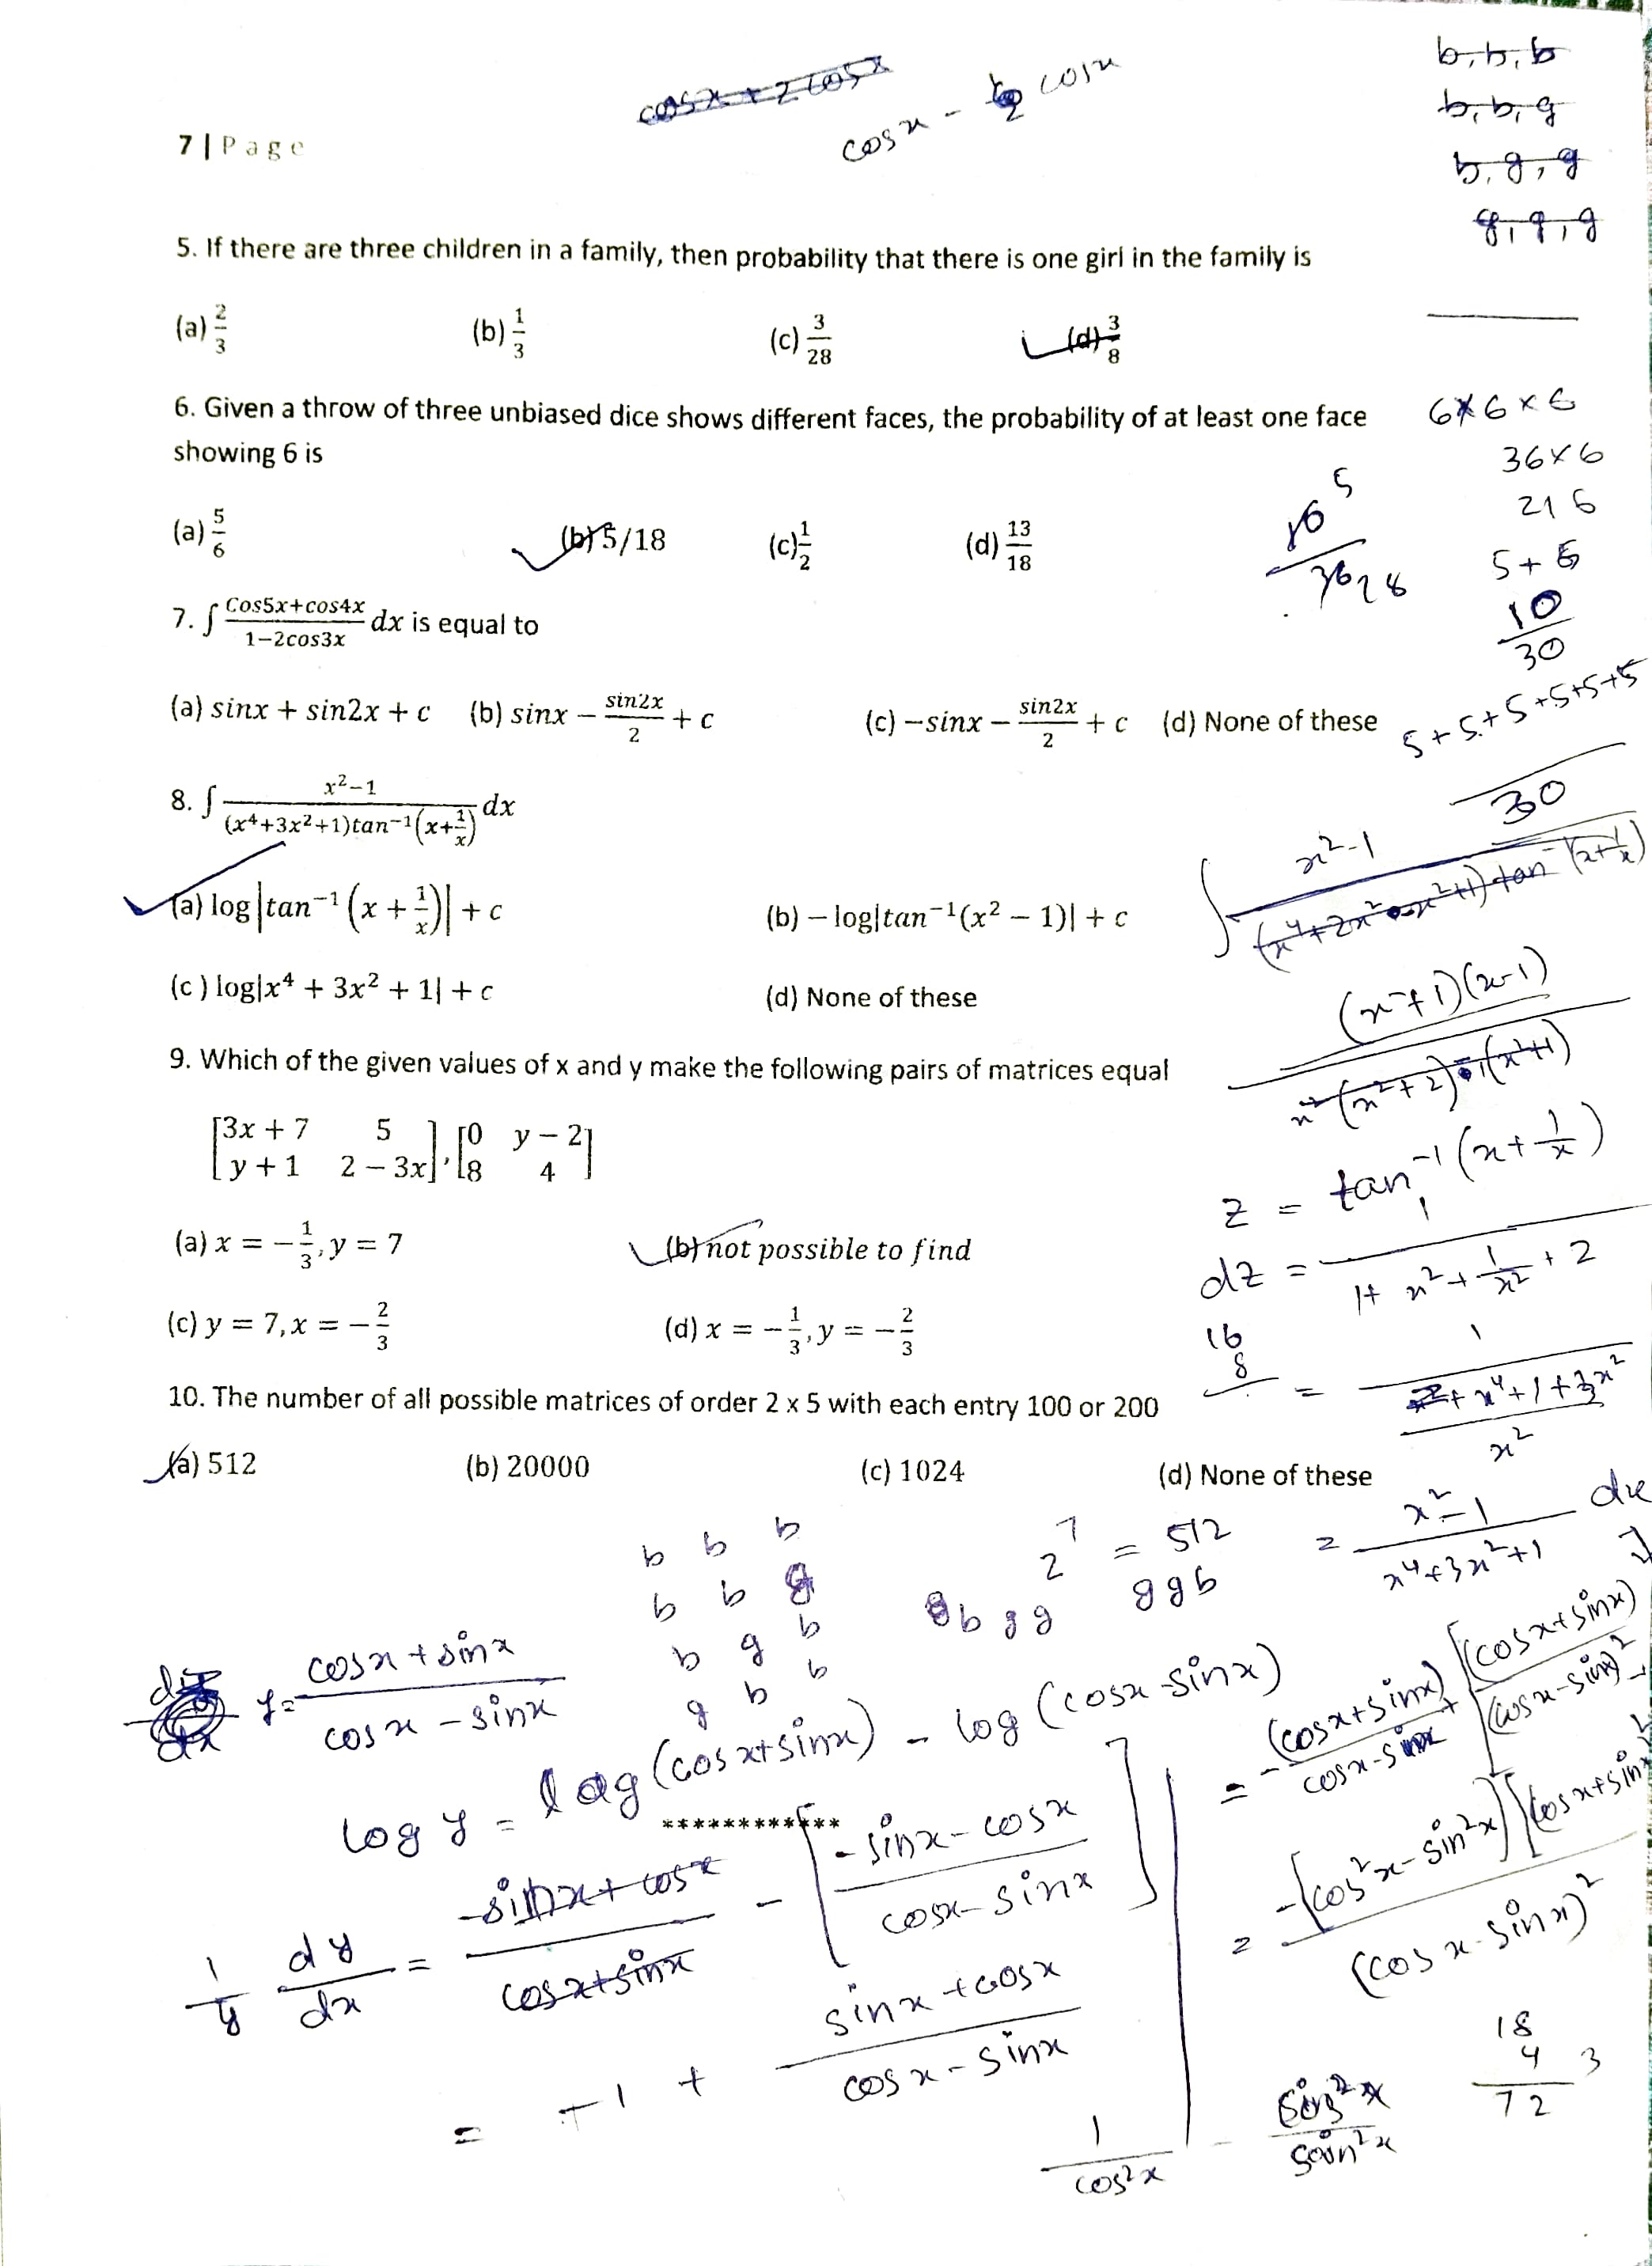 cosx + 2cosx
cosx - 2 cosx
b, b, b
b, b, g
b, g, g
g, g, g
7 | Page
5. If there are three children in a family, then probability that there is one girl in the family is
(a) 2/3 (b) 1/3 (c) 3/28 (d) 3/8
6. Given a throw of three unbiased dice shows different faces, the probability of at least one face
showing 6 is
6 × 6 × 6
36 × 6
216
5 + 5
10/30
(a) 5/6 (b) 5/18 (c) 1/2 (d) 13/18
7. ∫ (Cos5x+cos4x)/(1−2cos3x) dx is equal to
(a) sinx + sin2x + c (b) sinx − sin2x/2 + c (c) −sinx − sin2x/2 + c (d) None of these
5+5+5+5+5+5
30
8. ∫ (x²−1)/((x⁴+3x²+1)tan⁻¹(x+1/x)) dx
(a) log|tan⁻¹(x + 1/x)| + c (b) − log|tan⁻¹(x² − 1)| + c
(c) log|x⁴ + 3x² + 1| + c (d) None of these
(x+1)(x-1)
9. Which of the given values of x and y make the following pairs of matrices equal
[3x + 7 5], [0 y − 2]
[y + 1 2 − 3x] [8 4]
z = tan⁻¹(x + 1/x)
dz = 1/(1 + x² + 1/x² + 2)
(a) x = −1/3, y = 7 (b) not possible to find
(c) y = 7, x = −2/3 (d) x = −1/3, y = −2/3
16
8
10. The number of all possible matrices of order 2 x 5 with each entry 100 or 200
(a) 512 (b) 20000 (c) 1024 (d) None of these
= (x²-1)/(x⁴+3x²+1) dx
b b b
b b g
b g b
g b b
2⁷ = 512
b g g g g b
y = (cosx + sinx)/(cosx - sinx)
log y = log(cosx+sinx) - log(cosx-sinx)
************
1/y dy/dx = (-sinx + cosx)/(cosx+sinx) - [(-sinx - cosx)/(cosx - sinx)]
= -1 + (sinx + cosx)/(cosx - sinx)
(cosx - sinx)²
1/cos²x
18
4 3
72